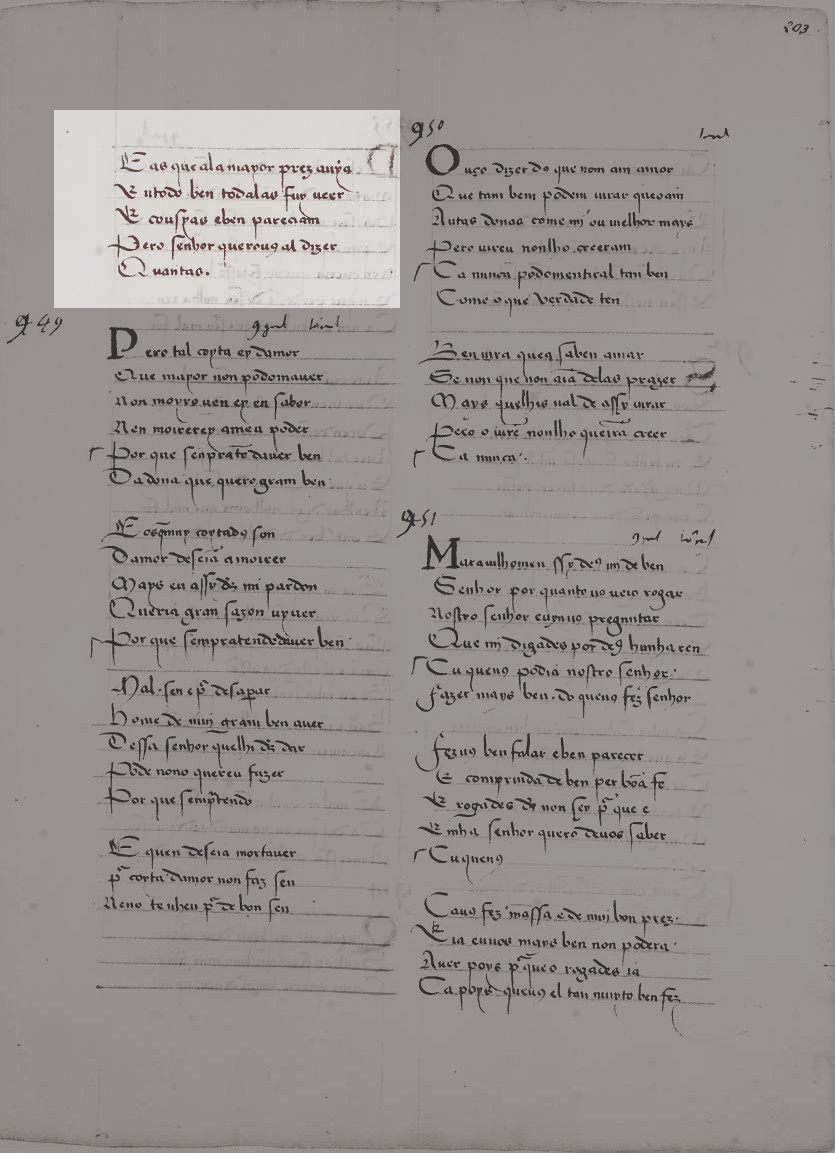 203
E as que ala mayor prez auya
E utodo ben todalas fuy ueer
E couspas eben pareciam
Pero senhor querouꝯ al dizer
Quantas.
949
Pero tal coyta ey damor
Que mayor non podomauer
Non moyro nen ey en sabor
Nen moirerey ameu poder
Por que senpratẽdauer ben
Da dona que quero gram ben
coytadꝯ son
Damor deseiã amoirer
Mays eu assy ds̃ mi pardon
Queria gran sazon uyuer
Por que sempratendedauer ben
Mal sen e
home de muj gram ben auer
Dessa senhor quelhi ds̃ dar
Pode nono quereu fazer
Por que
E quen deseia mortauer
coyta damor non faz sen
de bon sen
950
Ouço dizer dꝯ que nom am amor
Que tam bem podem uirar queoam
Autas donas come mj ou melhor mays
Pero uireu nonlho creeram
Ca nunca podomentiral tan ben
Come o que verdade ten
Ben uira quen saben amar
Se non que non aiã delas prazer
Mays quelhis ual de assy uirar
nonlho queirã creer
Ca nunca.
951
Marauilhomen ssy deꝯ mj de ben
Senhor por quanto uo ueio rogar
Nostro senhor euynuꝯ preguntar
Que mj digades por deꝯ hunha ren
Cu quenꝯ podia nostro senhor
fazer mays ben. do quenꝯ fez senhor
fezuꝯ ben falar eben parecer
E comprinda de ben per bõa fe
E rogades ds̃ non sey que e
E mha senhor quero deuos saber
Cu quenꝯ
Cauꝯ fez massa e de muj bon prez
E ia enuos mays ben non podera
Auer poys rogades ia
Ca poys quenꝯ el tan muyto ben fez